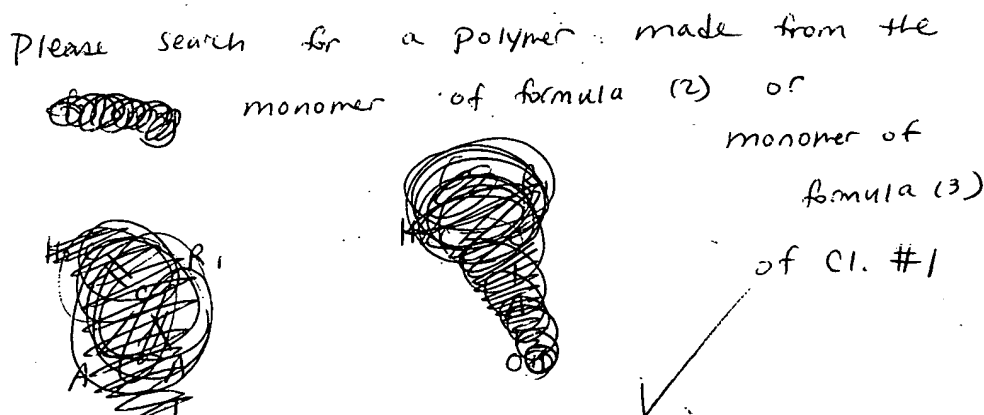 Please search for a polymer made from the
monomer of formula (2) or
monomer of
formula (3)
of Cl. #1